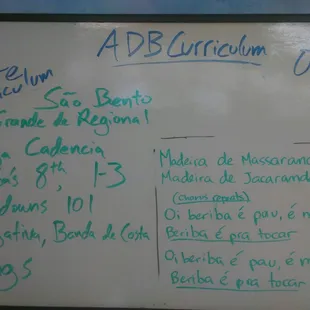 ADB Curriculum
São Bento
Grande de Regional
Cadencia
8th, 1-3
downs 101
Banda de Costa
Madeira de
Madeira de
(chorus repeats)
Oi beriba é pau, é
Beriba é pra tocar
Oi beriba é pau, é
Beriba é pra tocar